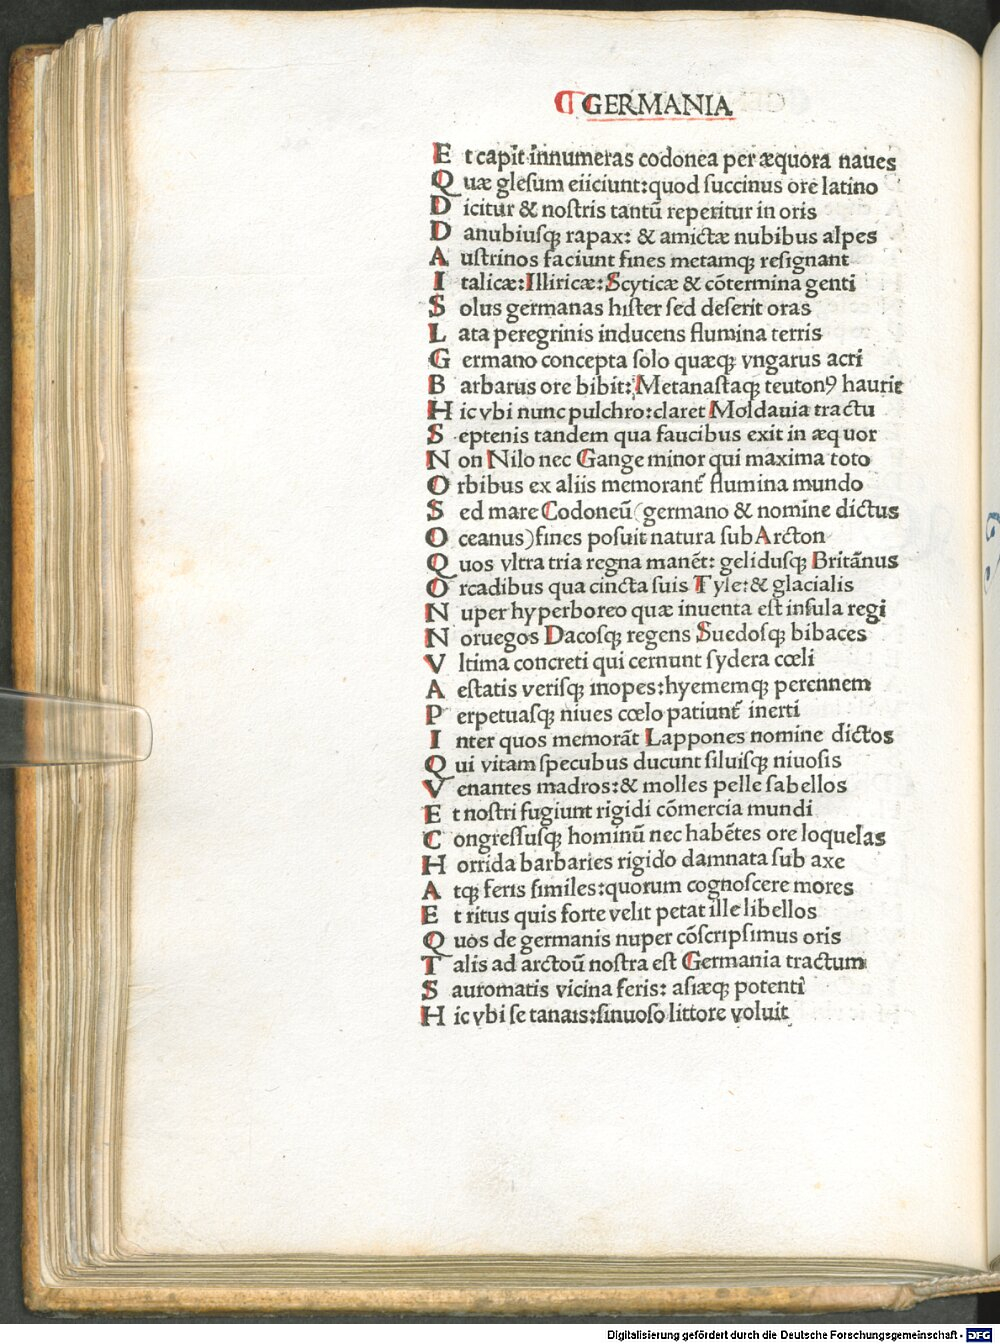 ¶ GERMANIA
E t capit innumeras codonea per æquora naues
Q uæ glesum eiiciunt: quod succinus ore latino
D icitur & nostris tantū reperitur in oris
D anubiusqꝫ rapax: & amictæ nubibus alpes
A ustrinos faciunt fines metamqꝫ resignant
I talicæ: Illiricæ: Scyticæ & cōtermina genti
S olus germanas hister sed deserit oras
L ata peregrinis inducens flumina terris
G ermano concepta solo quæqꝫ vngarus acri
B arbarus ore bibit: Metanastaqꝫ teutonꝰ haurit
H ic vbi nunc pulchro: claret Moldauia tractu
S eptenis tandem qua faucibus exit in æquor
N on Nilo nec Gange minor qui maxima toto
O rbibus ex aliis memorant̄ flumina mundo
S ed mare Codoneū (germano & nomine dictus
O ceanus) fines posuit natura sub Arcton
Q uos vltra tria regna manēt: gelidusqꝫ Britānus
O rcadibus qua cincta suis Tyle: & glacialis
N uper hyperboreo quæ inuenta est insula regi
N oruegos Dacosqꝫ regens Suedosqꝫ bibaces
V ltima concreti qui cernunt sydera cœli
A estatis verisqꝫ inopes: hyememqꝫ perennem
P erpetuasqꝫ niues cœlo patiunt̄ inerti
I nter quos memorāt Lappones nomine dictos
Q ui vitam specubus ducunt siluisqꝫ niuosis
V enantes madros: & molles pelle sabellos
E t nostri fugiunt rigidi cōmercia mundi
C ongressusqꝫ hominū nec habētes ore loquelas
H orrida barbaries rigido damnata sub axe
A tqꝫ feris similes: quorum cognoscere mores
E t ritus quis forte velit petat ille libellos
Q uos de germanis nuper cōscripsimus oris
T alis ad arctoū nostra est Germania tractum
S auromatis vicina feris: asiæqꝫ potenti
H ic vbi se tanais: sinuoso littore voluit
Digitalisierung gefördert durch die Deutsche Forschungsgemeinschaft - DFG